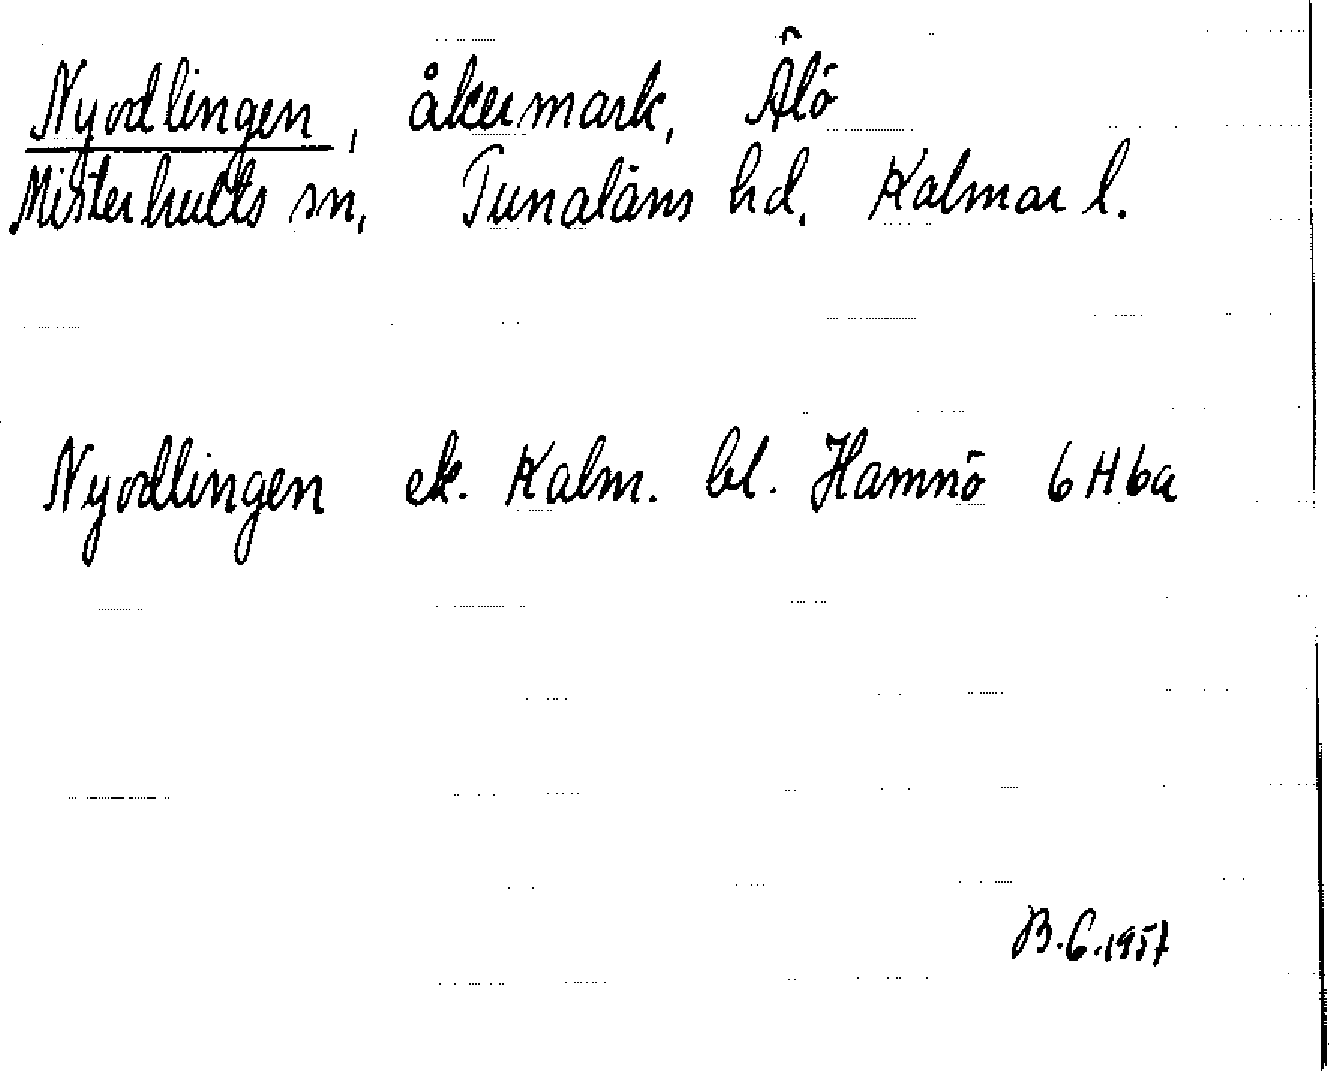 Nyodlingen, åkermark, Älö
Misterhults sn, Tunaläns hd, Kalmar l.
Nyodlingen ek. Kalm. bl. Hamnö 6H6a
B.G.1957